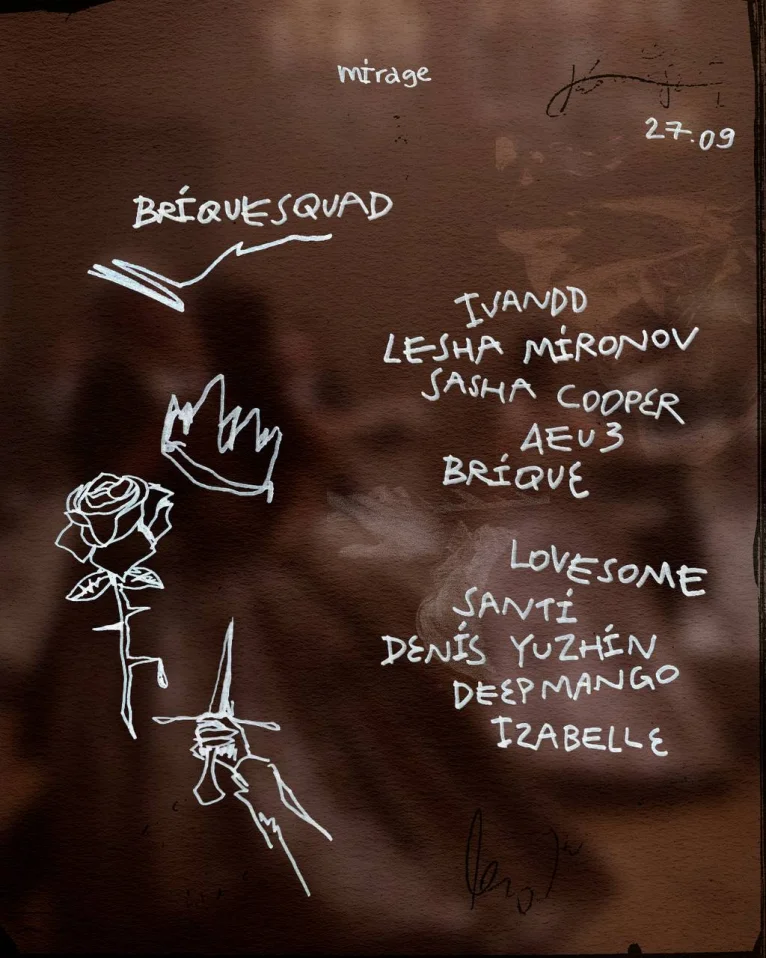 mirage
27.09
BRÍQUESQUAD
IVANDD
LESHA MÍRONOV
SASHA COOPER
AEU3
BRÍQUE
LOVESOME
SANTÍ
DENÍS YUZHÍN
DEEPMANGO
IZABELLE